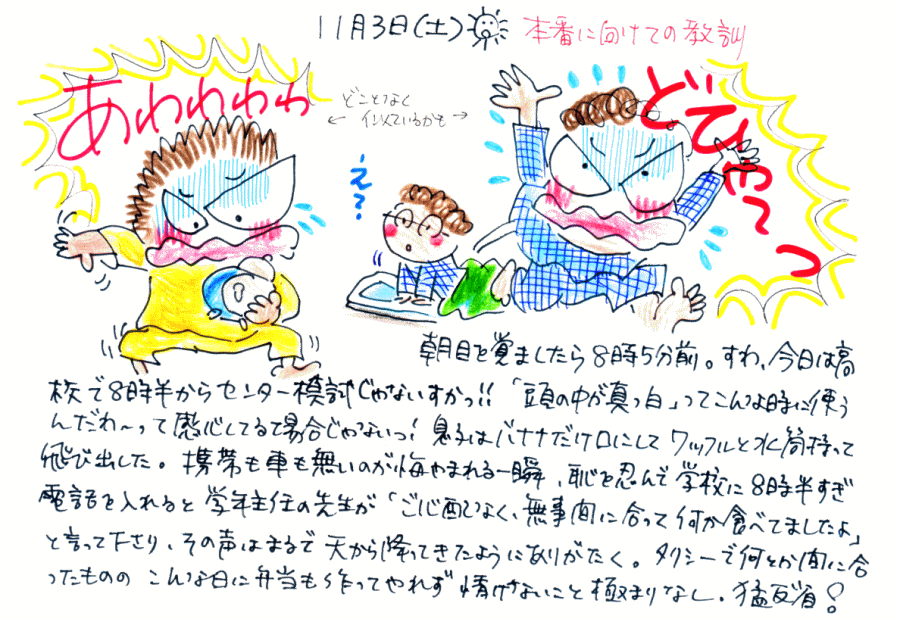 11月3日(土) 本番に向けての教訓
あわわわわ
どことなく
← 似ているかも →
え?
どひゃーっ
朝目を覚ましたら8時5分前。すわ、今日は高
校で8時半からセンター模試じゃないすかっ!!「頭の中が真っ白」ってこんな時に使う
んだわ〜って感心してる場合じゃないっ!息子はバナナだけ口にしてワッフルと水筒持って
飛び出した。携帯も車も無いのが悔やまれる一瞬、恥を忍んで学校に8時半すぎ
電話を入れると学年主任の先生が「ご心配なく、無事間に合って何か食べてましたよ」
と言って下さり、その声はまるで天から降ってきたようにありがたく。タクシーで何とか間に合
ったものの こんな日に弁当も作ってやれず情けないこと極まりなし。猛反省!